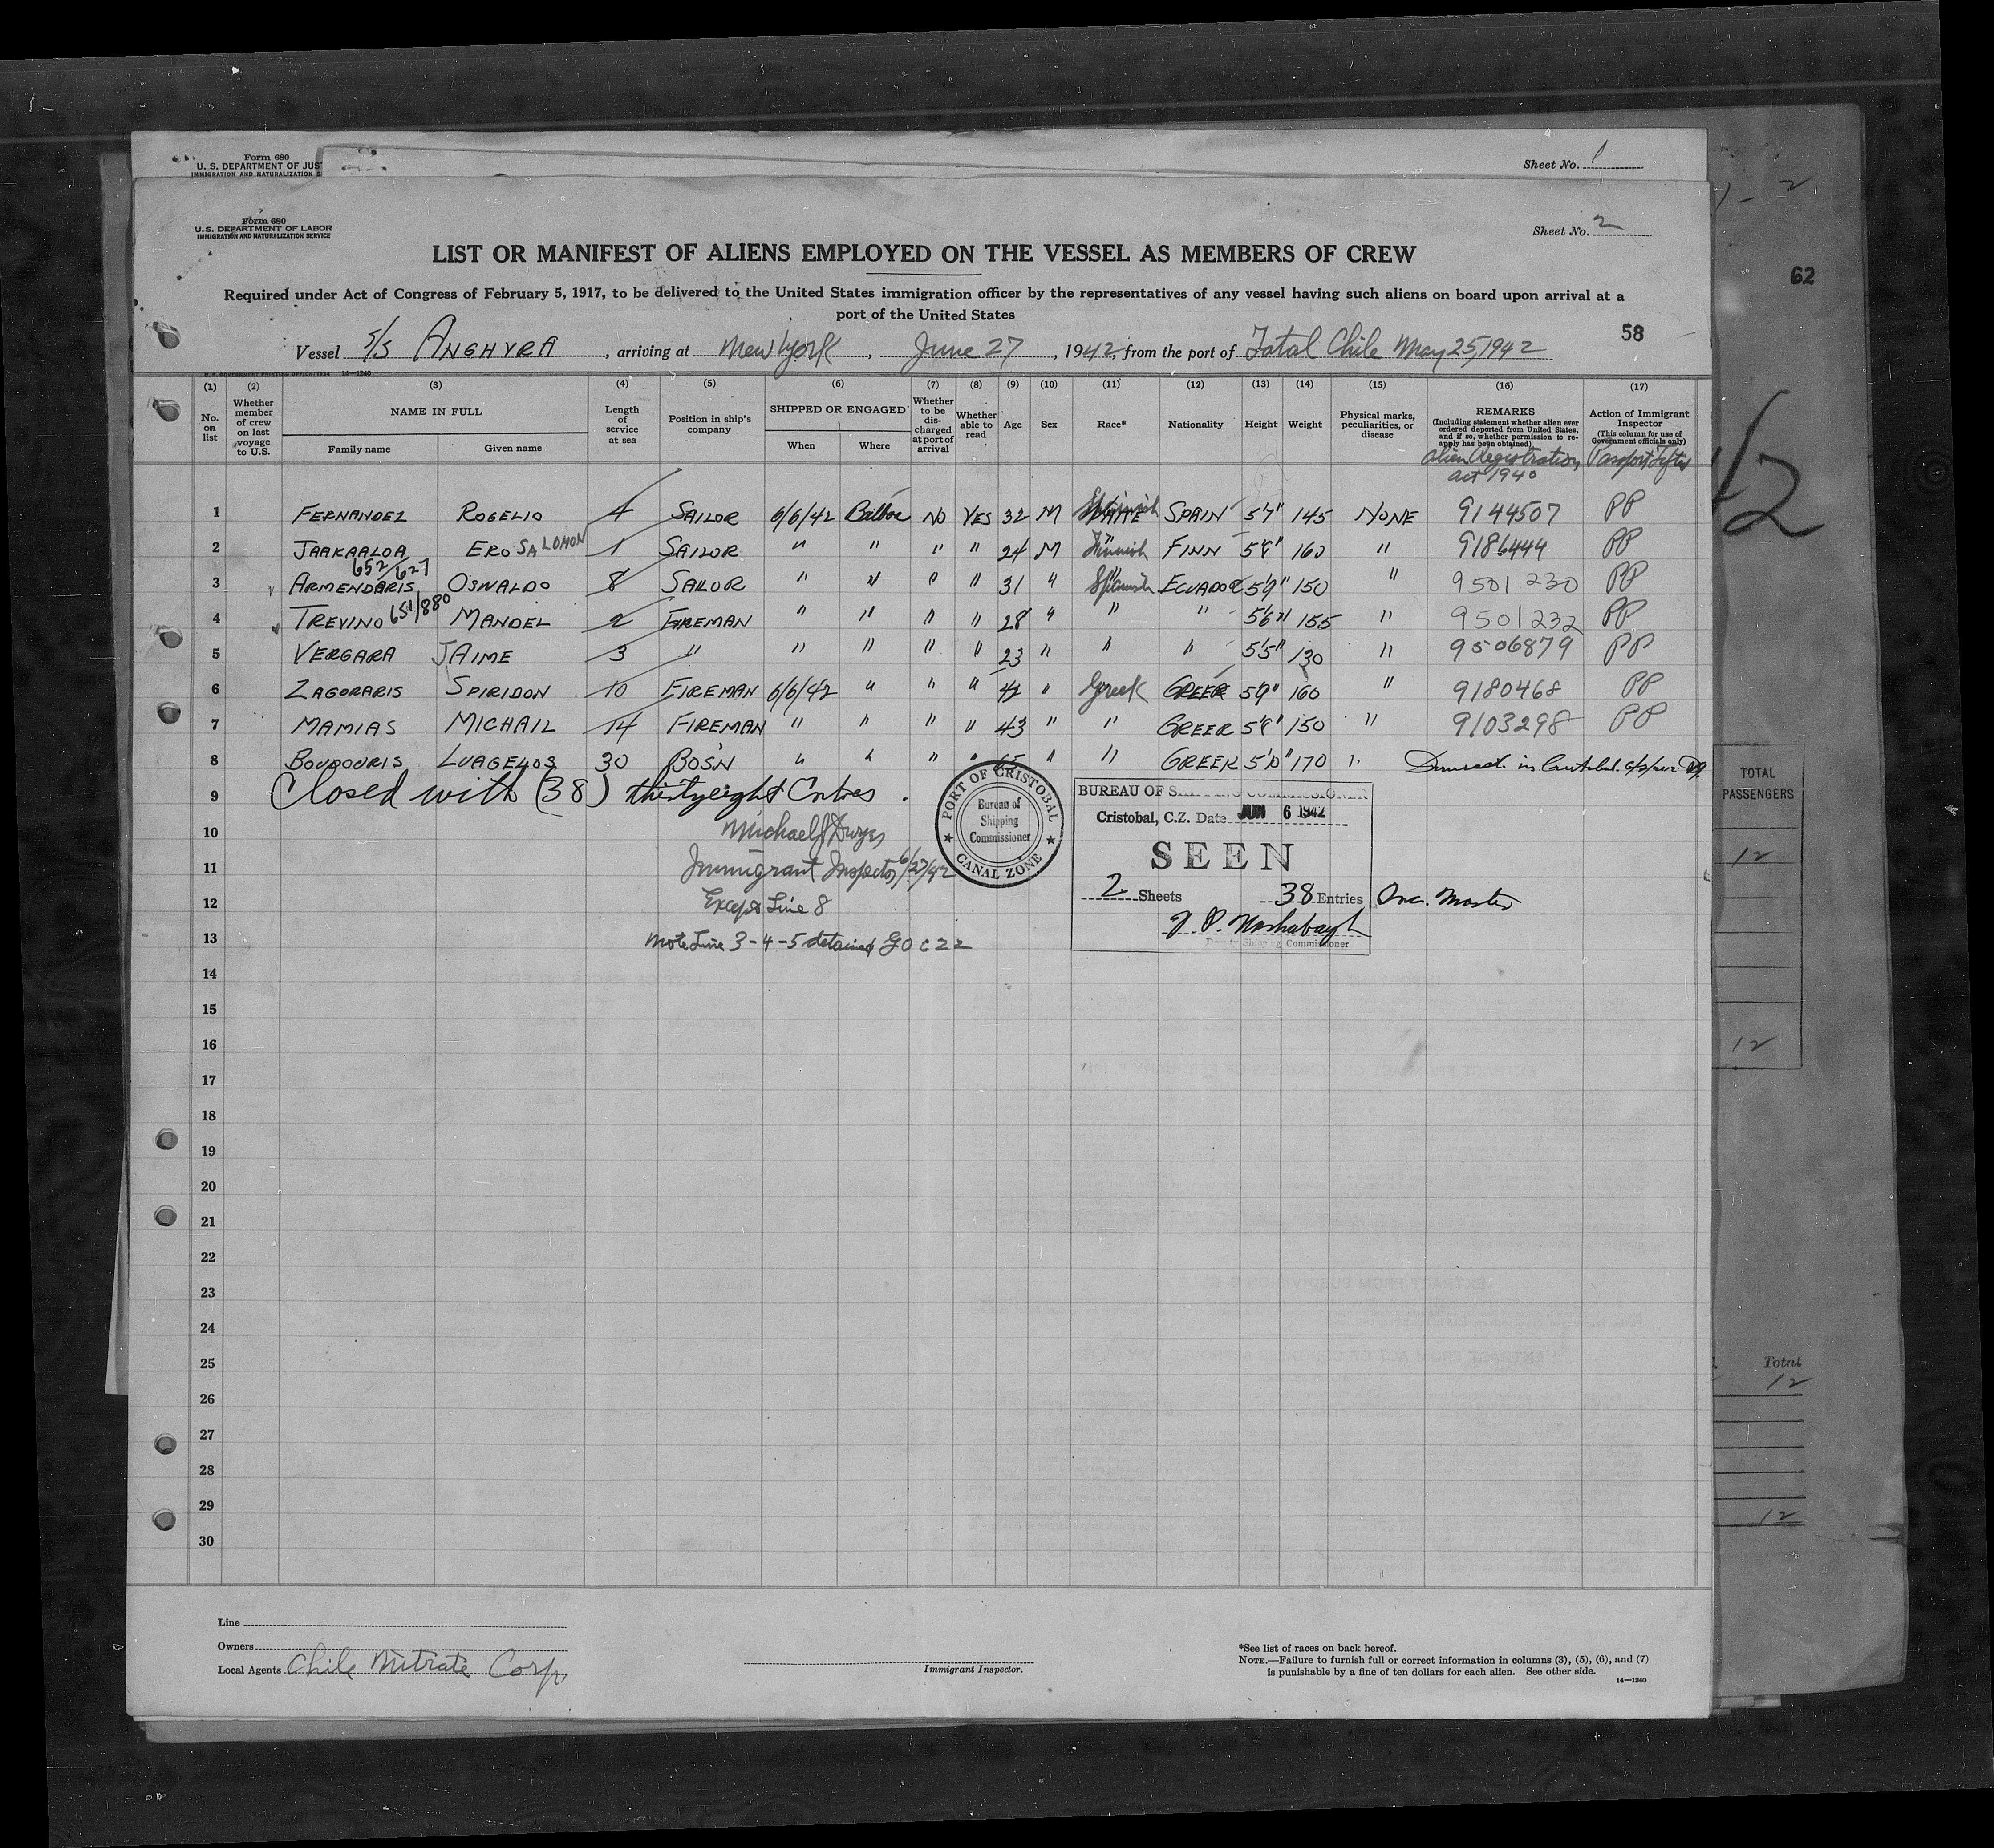 Form 680
U. S. DEPARTMENT OF JUS
IMMIGRATION AND NATURALIZATION S
Sheet No. 1
Form 680
U.S. DEPARTMENT OF LABOR
IMMIGRATION AND NATURALIZATION SERVICE
Sheet No. 2
LIST OR MANIFEST OF ALIENS EMPLOYED ON THE VESSEL AS MEMBERS OF CREW
Required under Act of Congress of February 5, 1917, to be delivered to the United States immigration officer by the representatives of any vessel having such aliens on board upon arrival at a
port of the United States
62
58
Vessel S/S ANGHYRA, arriving at New York, June 27, 1942, from the port of Tatal Chile May 25, 1942
(1) (2) (3) (4) (5) (6) (7) (8) (9) (10) (11) (12) (13) (14) (15) (16) (17)
No. on list
Whether member of crew on last voyage to U.S.
NAME IN FULL
Family name Given name
Length of service at sea
Position in ship's company
SHIPPED OR ENGAGED
When Where
Whether to be discharged at port of arrival
Whether able to read
Age
Sex
Race*
Nationality
Height
Weight
Physical marks, peculiarities, or disease
REMARKS
(Including statement whether alien ever ordered deported from United States, and if so, whether permission to reapply has been obtained)
Alien Registration Act 1940
Action of Immigrant Inspector
(This column for use of Government officials only)
Passport
1 FERNANDEZ ROGELIO 4 SAILOR 6/6/42 Balboa NO YES 32 M Spanish SPAIN 5'7" 145 NONE 9144507 PP
2 JAAKAALOA ERO SALOMON 1 SAILOR " " " " 24 M Finnish FINN 5'8" 160 " 9186444 PP
652/627
3 ARMENDARIS OSWALDO 8 SAILOR " " " " 31 " Spanish ECUADOR 5'9" 150 " 9501230 PP
4 TREVINO 651/880 MANOEL 2 FIREMAN " " " " 28 " " " 5'6" 155 " 9501232 PP
5 VERGARA JAIME 3 " " " " " 23 " " " 5'5" 130 " 9506879 PP
6 ZAGORARIS SPIRIDON 10 FIREMAN 6/6/42 " " " 42 " Greek GREEK 5'9" 160 " 9180468 PP
7 MAMIAS MICHAIL 14 FIREMAN " " " " 43 " " GREEK 5'8" 150 " 9103298 PP
8 BOUDOURIS LUAGELOS 30 BOSN " " " " 65 " " GREEK 5'10" 170 "
9 Closed with (38) thirtyeight Entries.
10 Michael J Dwyer
11 Immigrant Inspector 6/27/42
12 Except Line 8
13 Note Line 3-4-5 detained
14
15
16
17
18
19
20
21
22
23
24
25
26
27
28
29
30
PORT OF CRISTOBAL
Bureau of
Shipping
Commissioner
CANAL ZONE
BUREAU OF SHIPPING COMMISSIONER
Cristobal, C.Z. Date JUN 6 1942
SEEN
2 Sheets 38 Entries Inc. Master
Deputy Shipping Commissioner
TOTAL
PASSENGERS
12
12
Total
12
12
Line
Owners
Local Agents Chile Nitrate Corp.
Immigrant Inspector.
*See list of races on back hereof.
NOTE.—Failure to furnish full or correct information in columns (3), (5), (6), and (7)
is punishable by a fine of ten dollars for each alien. See other side.
14—1240